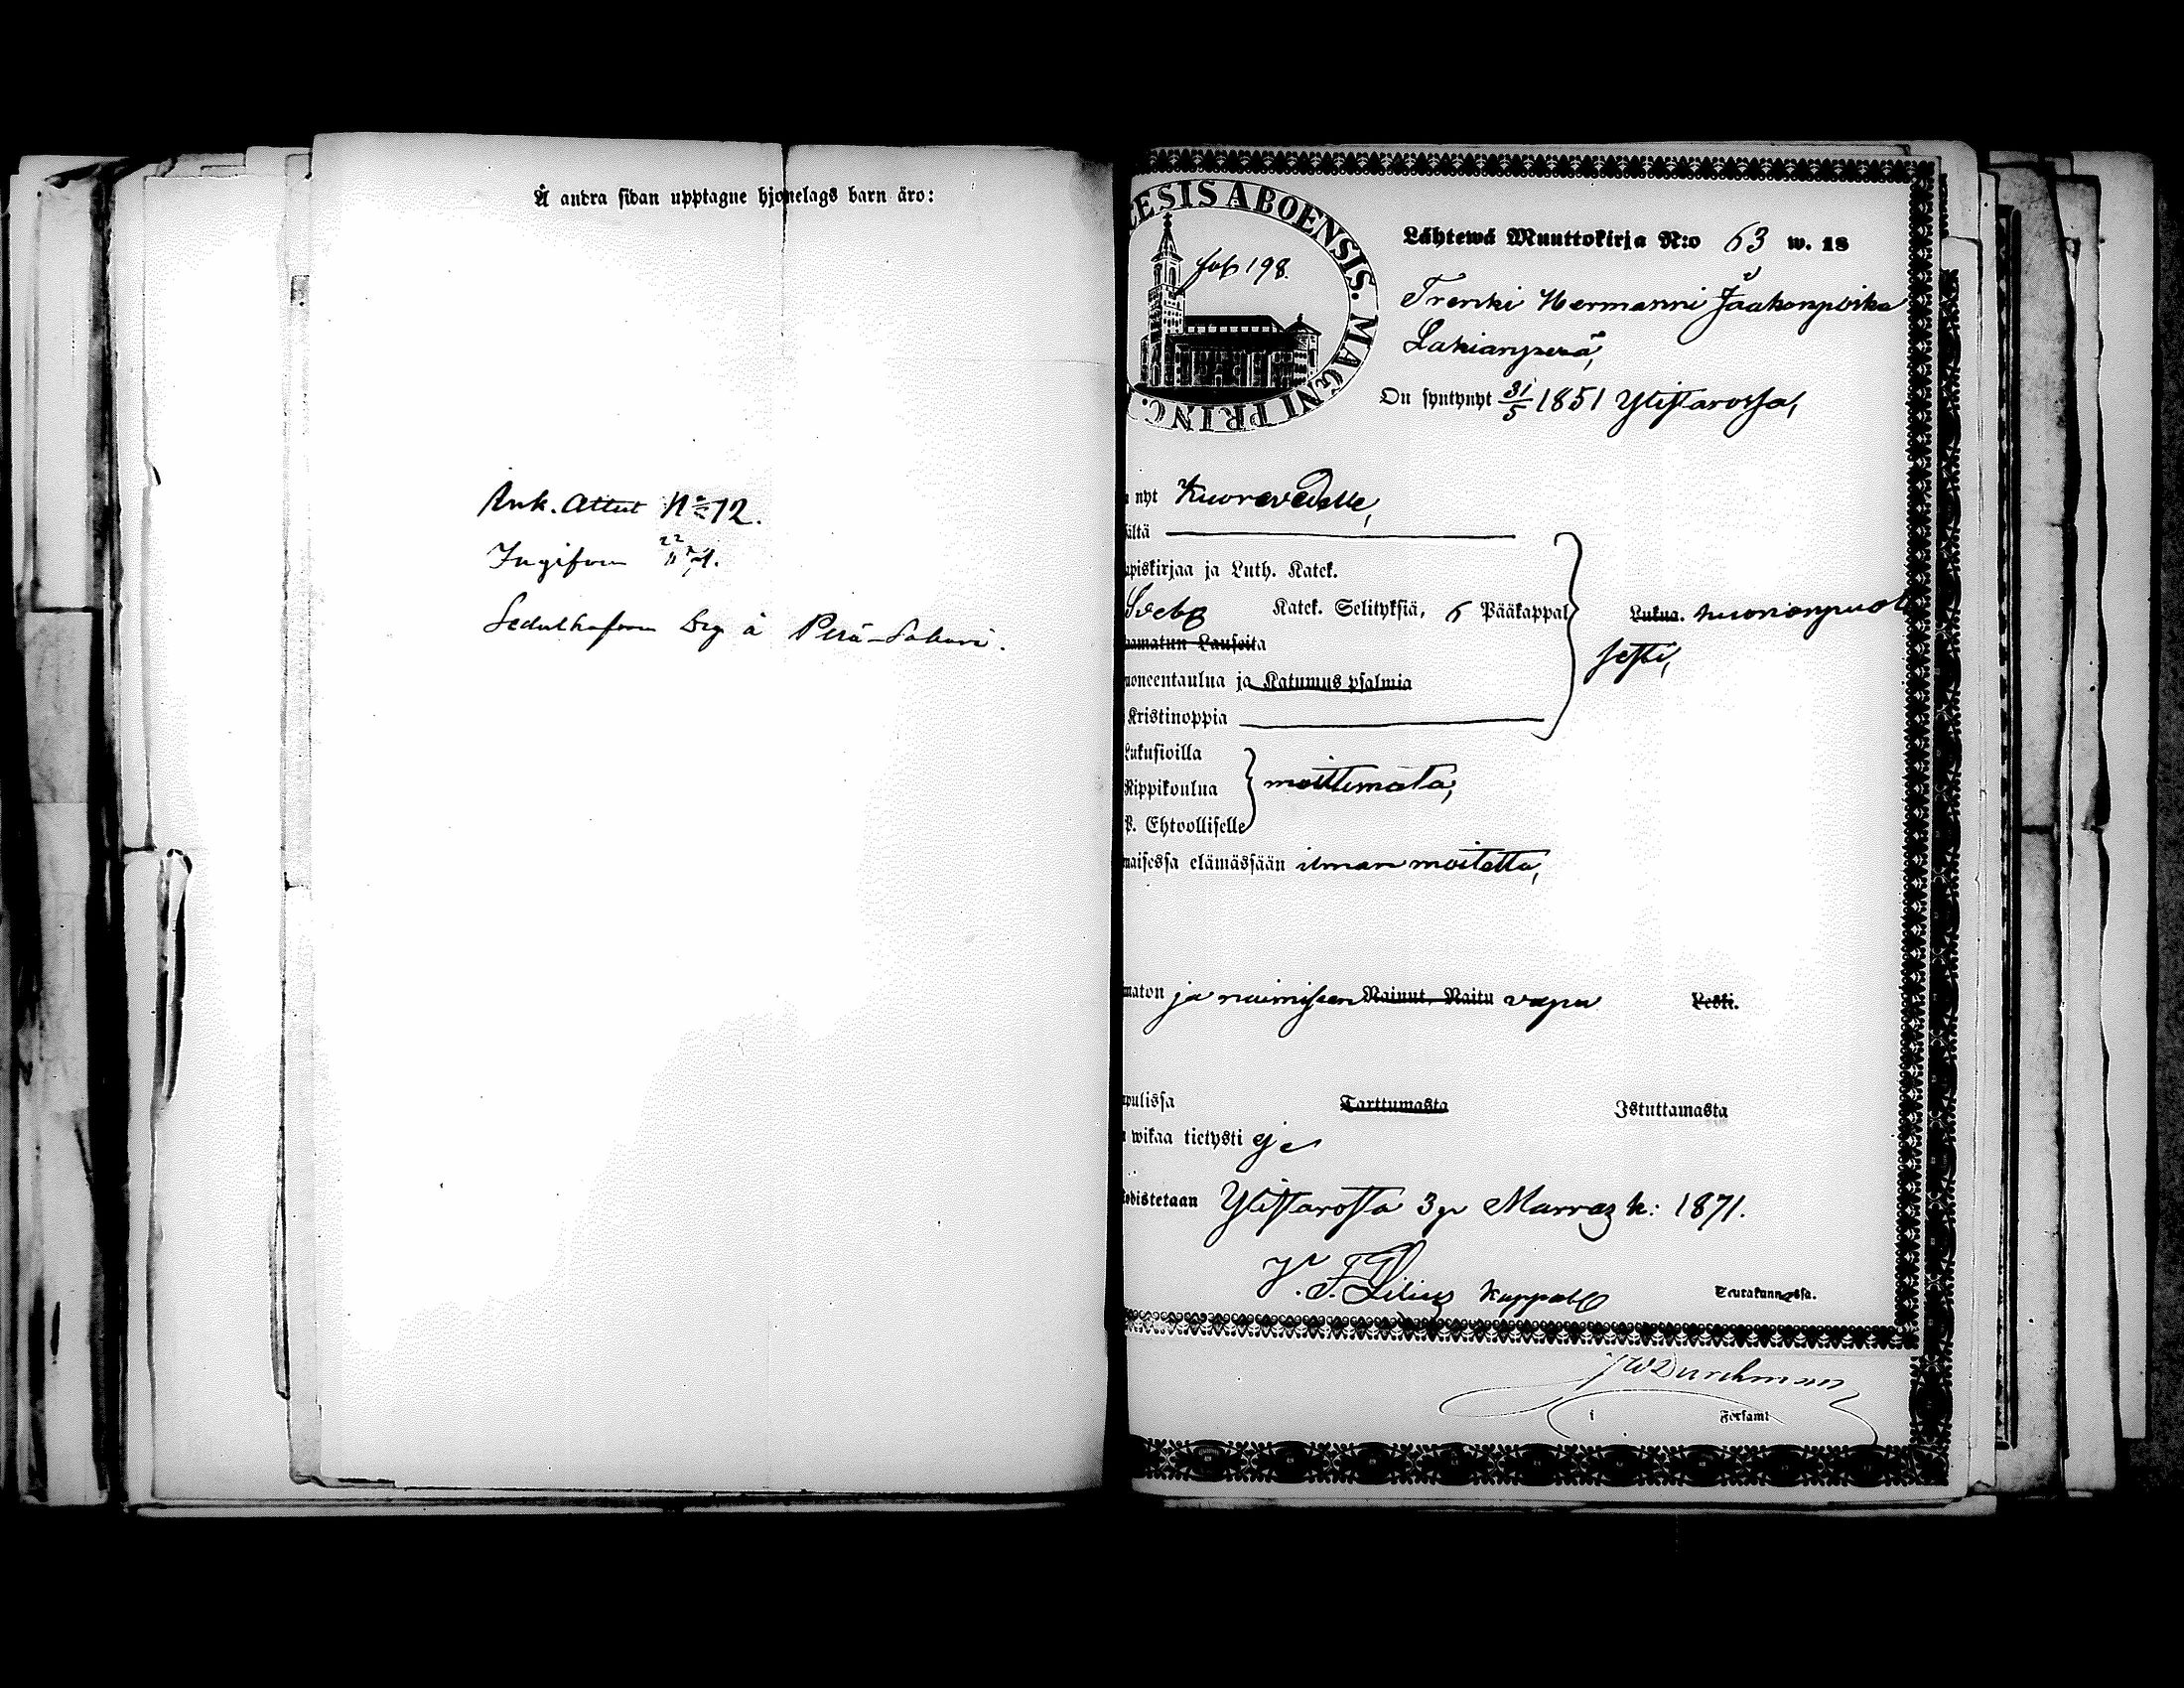 Å andra sidan upptagne hjonelags barn äro:
Ank. Attest No 12.
Ingifven 22/11 71.
Sedelhafven Drg å Perä-Sahari.
ESIS ABOENSIS. MAGNI PRINC.
fol 198.
Lähtewä Muuttokirja N:o 63 w. 18
Trenki Hermanni Jaakonpoika
Lakianperä,
On syntynyt 31/5 1851 Ylistarossa,
nyt Kuorevedelle,
ältä
ppiskirjaa ja Luth. Katek.
Sveb. Katek. Selityksiä, 6 Pääkappal
Lukua. huononpuol
sesti,
amatun Lauseita
uoneentaulua ja Katumus psalmia
Kristinoppia
Lukusioilla
Rippikoulua
moittimata,
P. Ehtoolliselle
maisessa elämässään ilman moitetta,
maton ja naimiseen Nainut, Naitu vapa Leski.
pulissa Tarttumasta Istuttamasta
wikaa tietysti ej
odistetaan Ylistarossa 3 p Marrask: 1871.
F. Lilius Kappal.
Seurakunnassa.
Durchman
i Församl